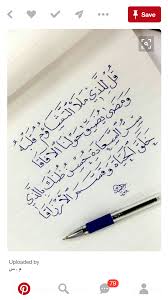 Save
قُل للذي مَلأ التشاؤمُ قلبَه
ومضى يُضيِّق حولنا الآفاقا
سرُّ السعادةِ حسنُ ظنك بالذي
خلق الحياةَ وقسَّم الأرزاقا
Uploaded by
م . س
79